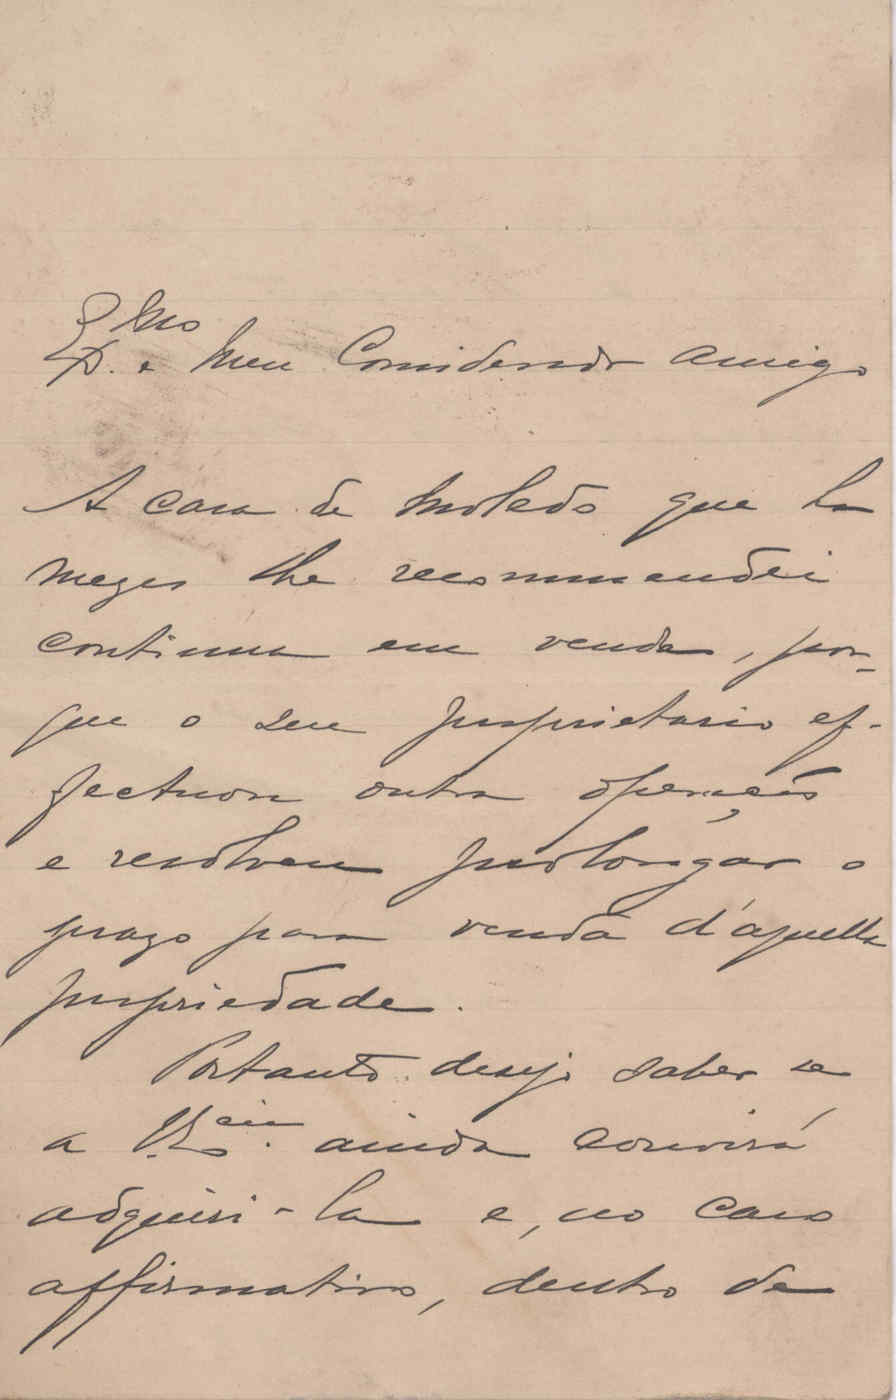 Exmo
Sr. e Meu Considerado amigo
A casa de Moledo que ha
mezes lhe recommendei
continua em venda, por-
que o seu proprietario ef-
fectuou outra operação
e resolveu prolongar o
prazo para venda d'aquella
propriedade.
Portanto desejo saber se
a V. Excia. ainda convirá
adquiri-la e, no caso
affirmativo, dentro de